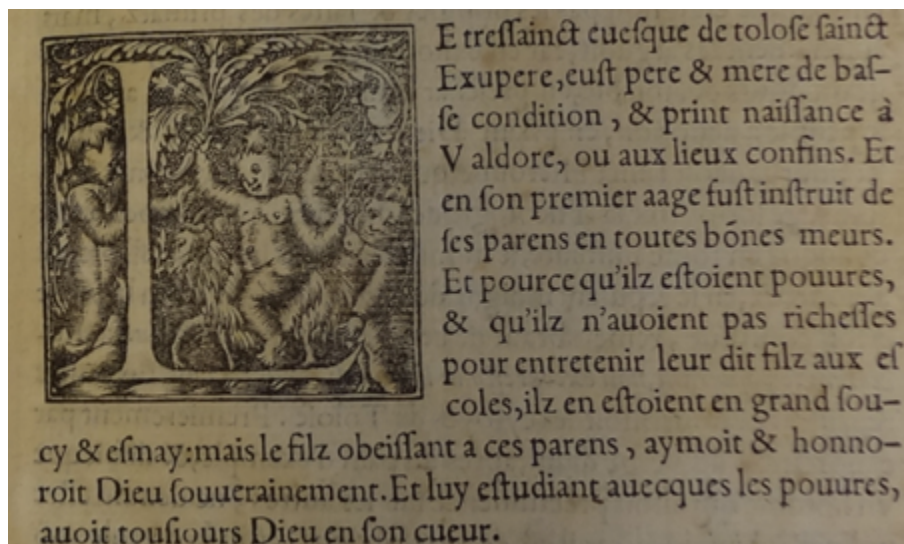 LE treſſainct eueſque de toloſe ſainct
Exupere, euſt pere & mere de baſ-
ſe condition, & print naiſſance à
Valdore, ou aux lieux confins. Et
en ſon premier aage fuſt inſtruit de
ſes parens en toutes bónes meurs.
Et pource qu'ilz eſtoient pouures,
& qu'ilz n'auoient pas richeſſes
pour entretenir leur dit filz aux eſ
coles, ilz en eſtoient en grand ſou-
cy & eſmay: mais le filz obeiſſant a ces parens, aymoit & honno-
roit Dieu ſouuerainement. Et luy eſtudiant auecques les pouures,
auoit touſiours Dieu en ſon cueur.